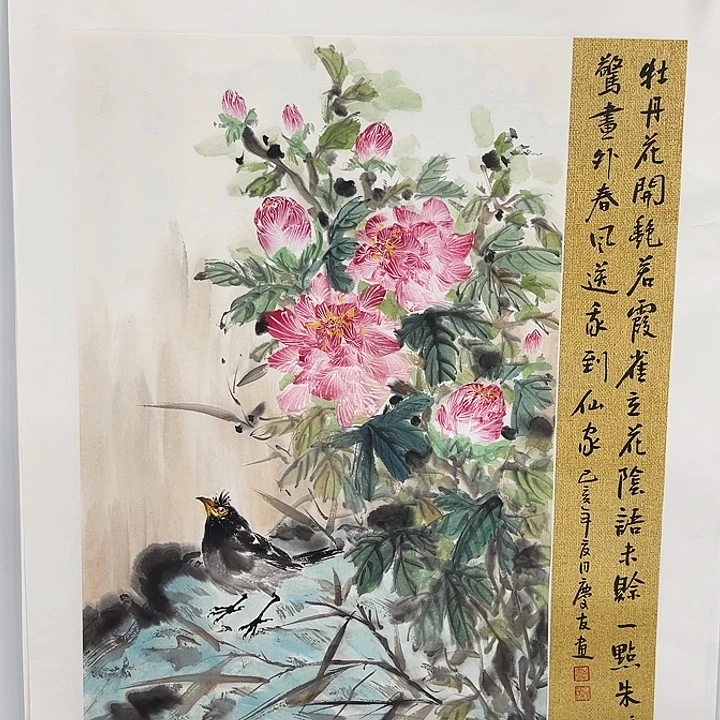 牡丹花開艷若霞雀立花陰語未賒一點朱
驚畫外春风送我到仙家 己亥年夏日慶友画